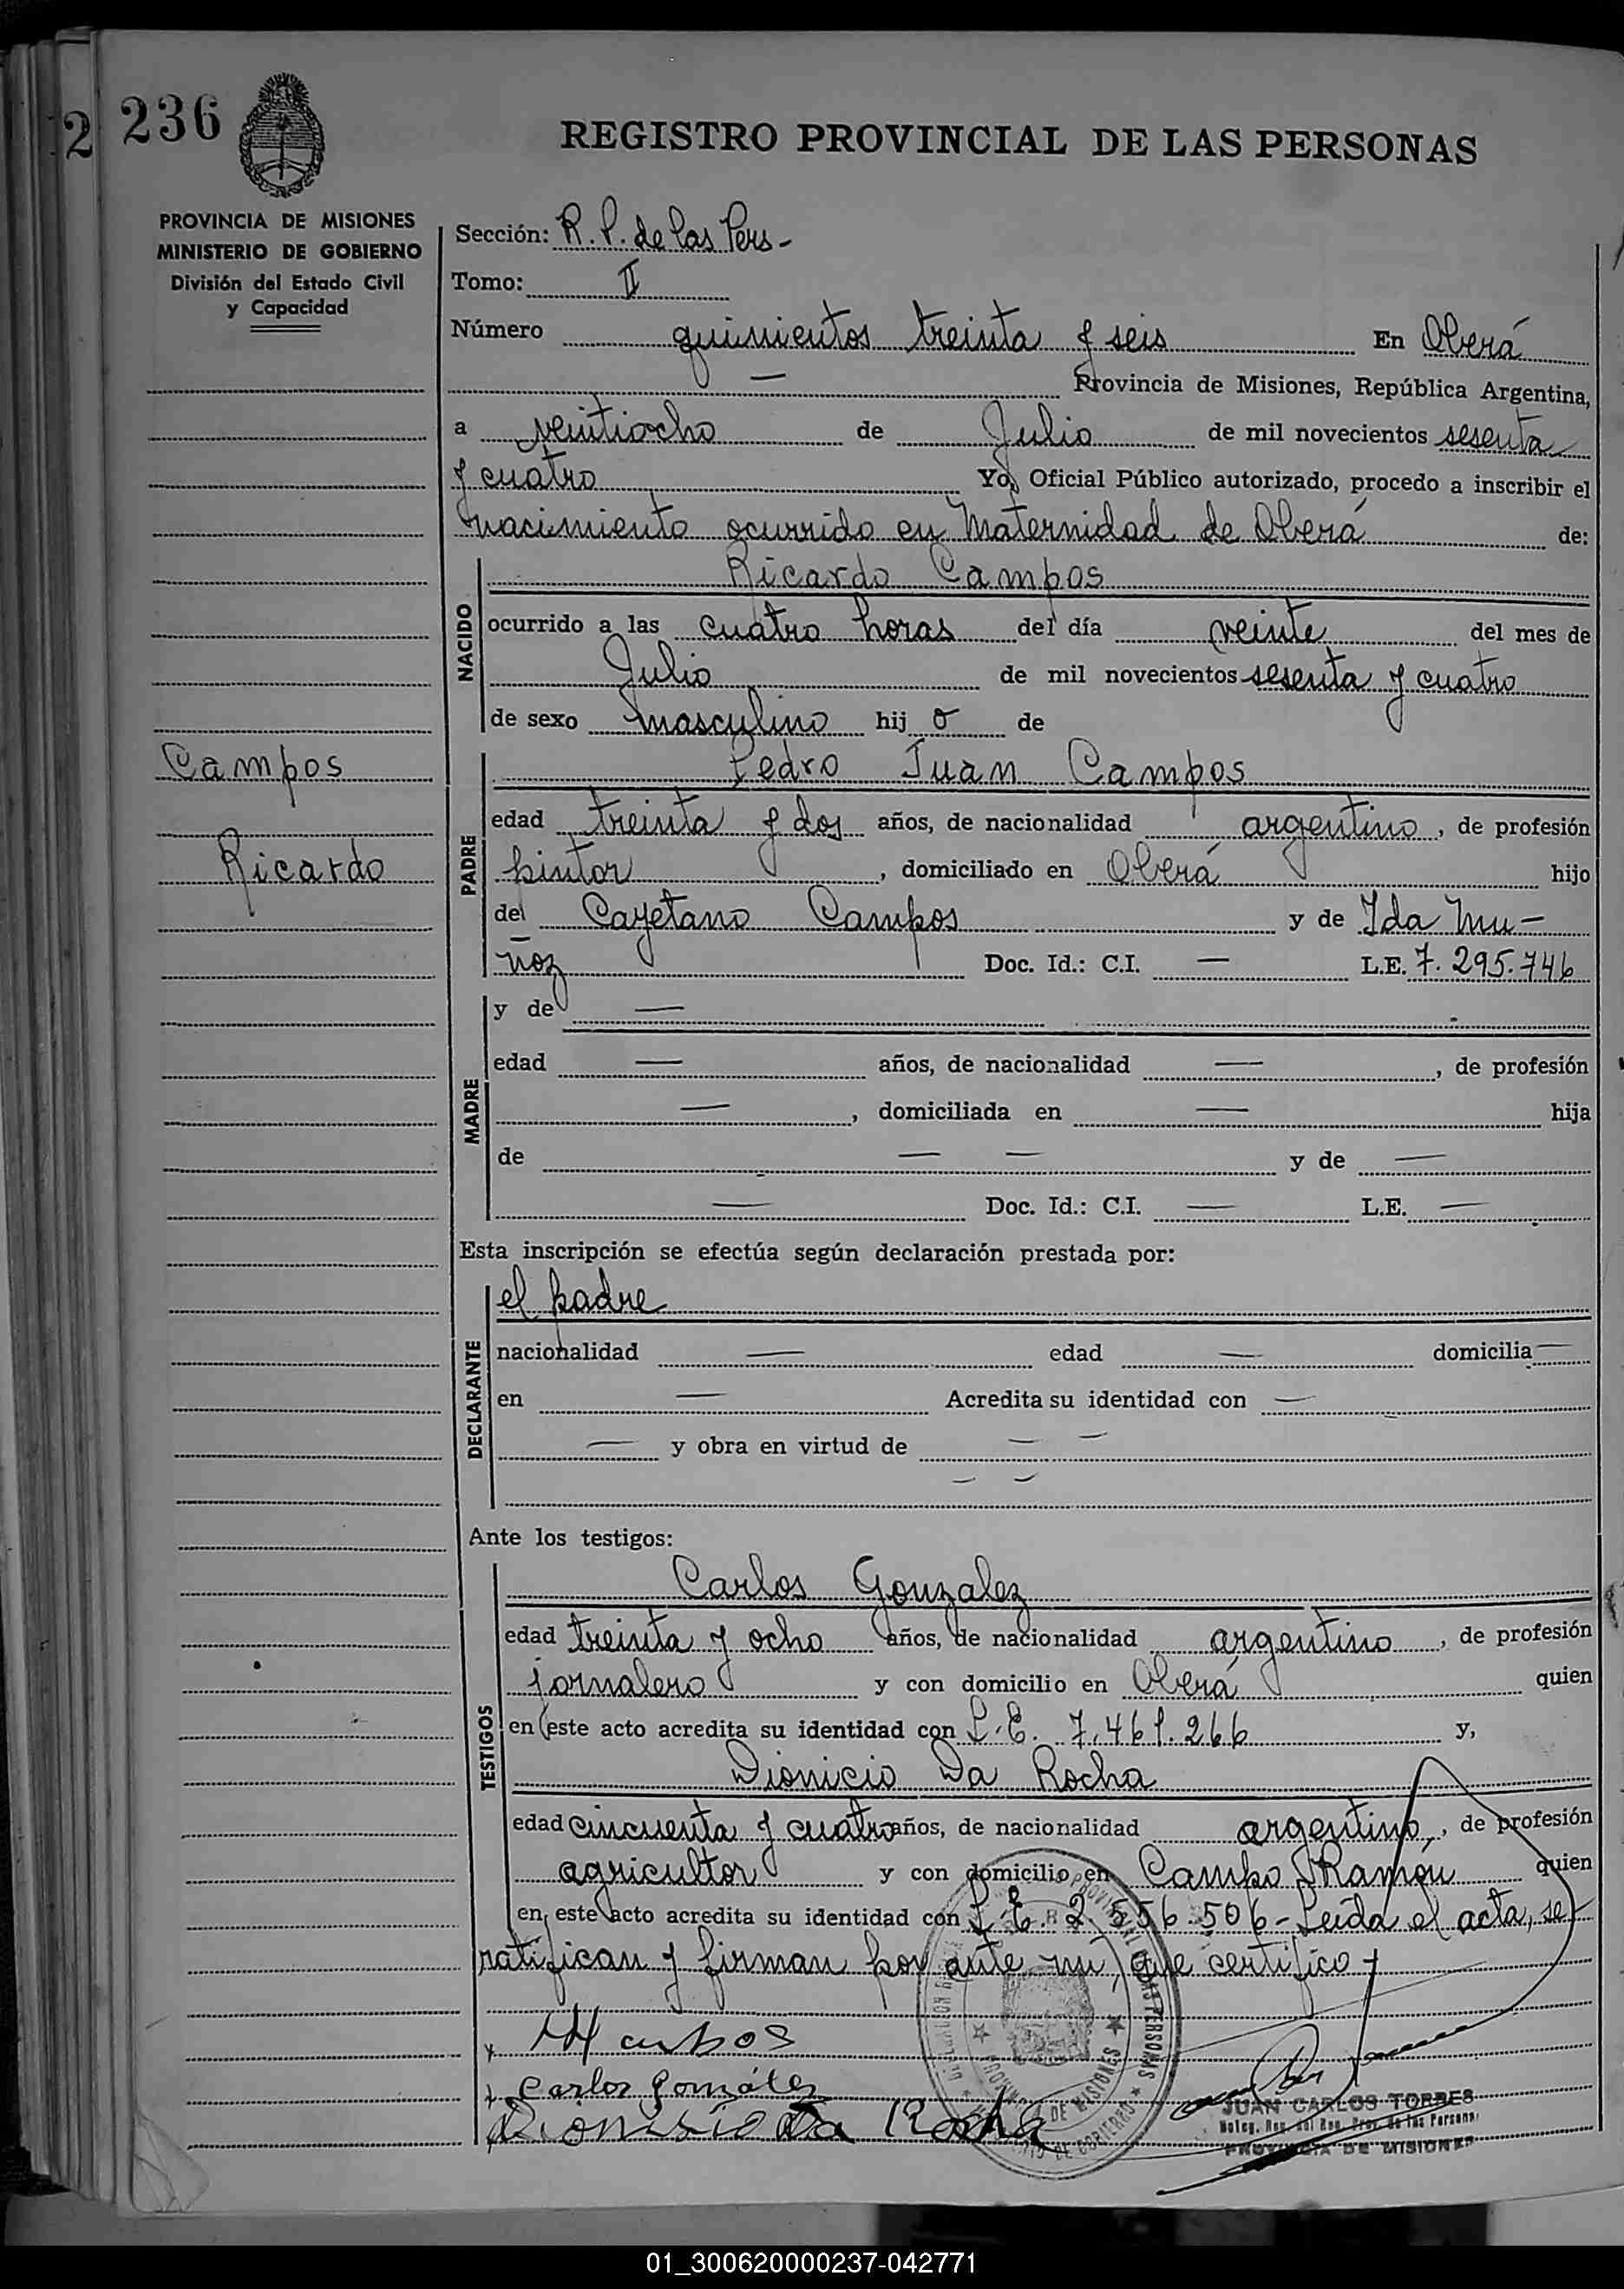 2 236
REGISTRO PROVINCIAL DE LAS PERSONAS
PROVINCIA DE MISIONES
MINISTERIO DE GOBIERNO
División del Estado Civil
y Capacidad
Sección: R. P. de las Pers -
Tomo: II
Número quinientos treinta y seis En Oberá
— Provincia de Misiones, República Argentina,
a veintiocho de Julio de mil novecientos sesenta
y cuatro Yo, Oficial Público autorizado, procedo a inscribir el
nacimiento ocurrido en Maternidad de Oberá de:
NACIDO
Ricardo Campos
ocurrido a las cuatro horas del día veinte del mes de
Julio de mil novecientos sesenta y cuatro
de sexo masculino hij o de
Campos
Ricardo
PADRE
Pedro Juan Campos
edad treinta y dos años, de nacionalidad argentino, de profesión
pintor, domiciliado en Oberá hijo
de Cayetano Campos y de Ida Mu-
ñoz Doc. Id.: C.I. — L.E. 7.295.746
MADRE
y de —
edad — años, de nacionalidad —, de profesión
—, domiciliada en — hija
de — — y de —
— Doc. Id.: C.I. — L.E. —
Esta inscripción se efectúa según declaración prestada por:
DECLARANTE
el padre
nacionalidad — edad — domicilia —
en — Acredita su identidad con —
— y obra en virtud de — —
— —
Ante los testigos:
TESTIGOS
Carlos Gonzalez
edad treinta y ocho años, de nacionalidad argentino, de profesión
jornalero y con domicilio en Oberá quien
en este acto acredita su identidad con L.E. 7.461.266 y,
Dionicio Da Rocha
edad cincuenta y cuatro años, de nacionalidad argentino, de profesión
agricultor y con domicilio en Campo Ramón quien
en este acto acredita su identidad con L.E. 2.556.506 - Leída el acta, se
ratifican y firman por ante mí, que certifico -
Carlos González
Dionisio Da Rocha
JUAN CARLOS TORRES
PROVINCIA DE MISIONES
01_300620000237-042771